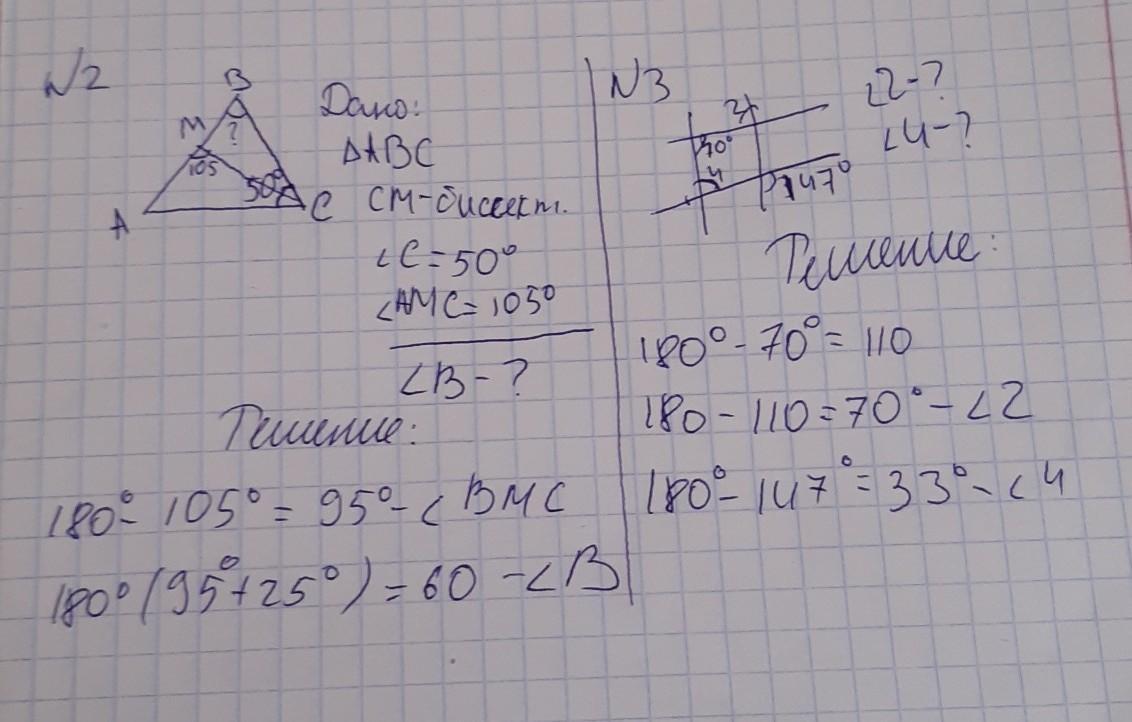 N2
B
?
M
105
50°
A
C
Дано:
ΔABC
CM-биссект.
∠C=50°
∠AMC=105°
∠B-?
Решение:
180°-105°=95°-∠BMC
180°(95°+25°)=60-∠B
N3
2
70°
4
147°
∠2-?
∠4-?
Решение:
180°-70°=110
180-110=70°-∠2
180°-147°=33°-∠4